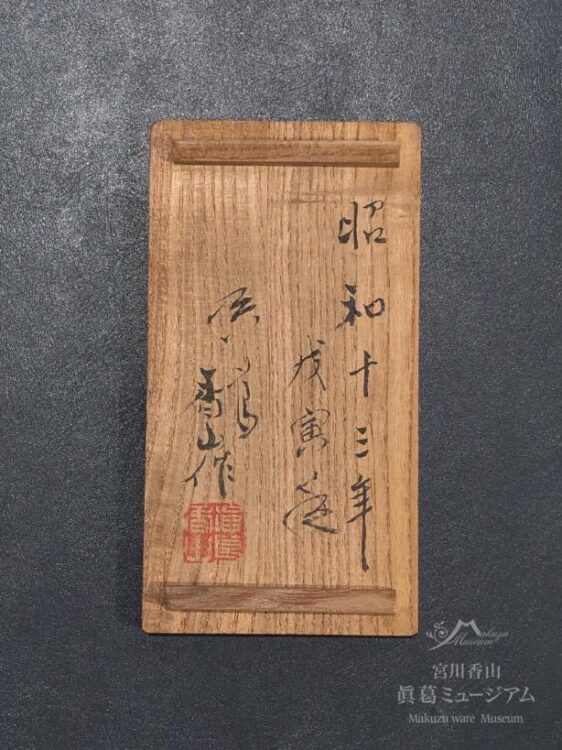 昭和十三年
戊寅
眞葛
香山作
真葛
香山
Makuzu
Museum
宮川香山
眞葛ミュージアム
Makuzu ware Museum